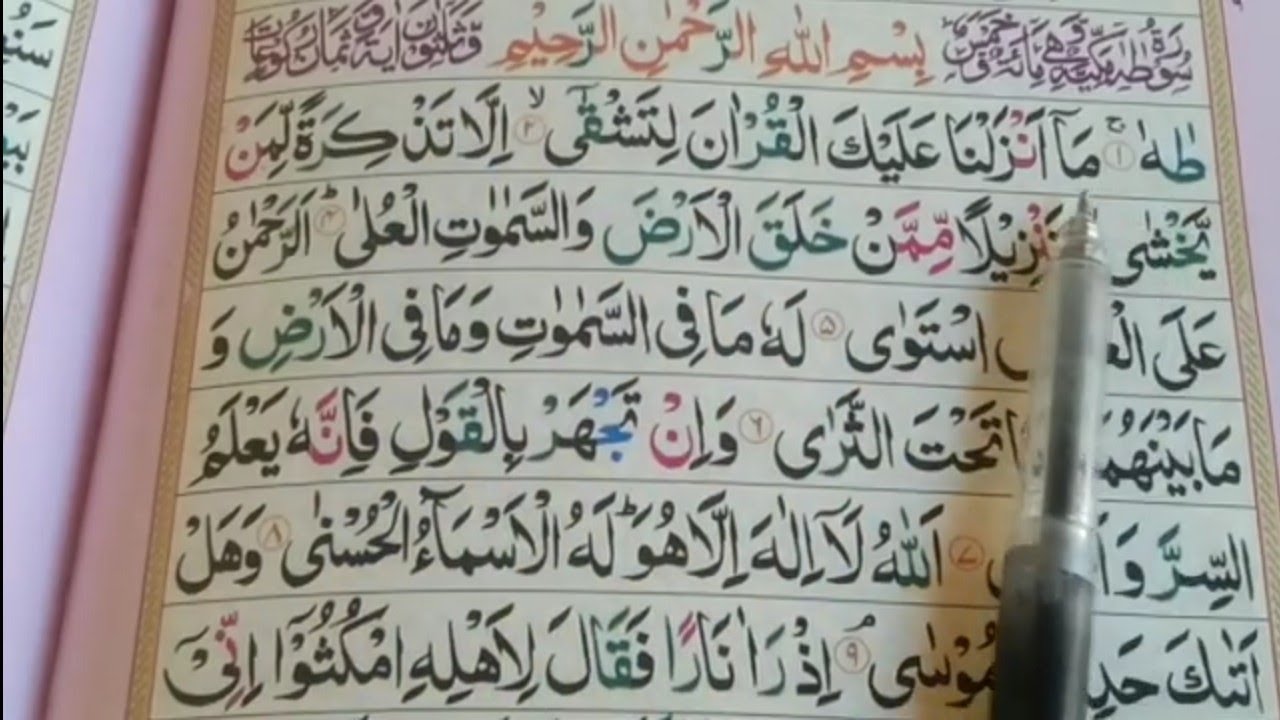 سورة طه مكية وهي مائة وخمس
بِسْمِ اللهِ الرَّحْمٰنِ الرَّحِيْمِ
وثلثون اية وثمان ركوعات
طٰهٰ ۚ ۝١ مَاۤ اَنْزَلْنَا عَلَيْكَ الْقُرْاٰنَ لِتَشْقٰۤى ۙ ۝٢ اِلَّا تَذْكِرَةً لِّمَنْ
يَّخْشٰى تَنْزِيْلًا مِّمَّنْ خَلَقَ الْاَرْضَ وَالسَّمٰوٰتِ الْعُلٰى ؕ ۝٤ اَلرَّحْمٰنُ
عَلَى اسْتَوٰى ۝٥ لَهٗ مَا فِى السَّمٰوٰتِ وَمَا فِى الْاَرْضِ وَ
مَا بَيْنَهُمَا تَحْتَ الثَّرٰى ۝٦ وَاِنْ تَجْهَرْ بِالْقَوْلِ فَاِنَّهٗ يَعْلَمُ
السِّرَّ وَ ۝٧ اَللّٰهُ لَاۤ اِلٰهَ اِلَّا هُوَ ؕ لَهُ الْاَسْمَآءُ الْحُسْنٰى ۝٨ وَهَلْ
اَتٰىكَ مُوْسٰى ۘ ۝٩ اِذْ رَاٰ نَارًا فَقَالَ لِاَهْلِهِ امْكُثُوْۤا اِنِّىْۤ